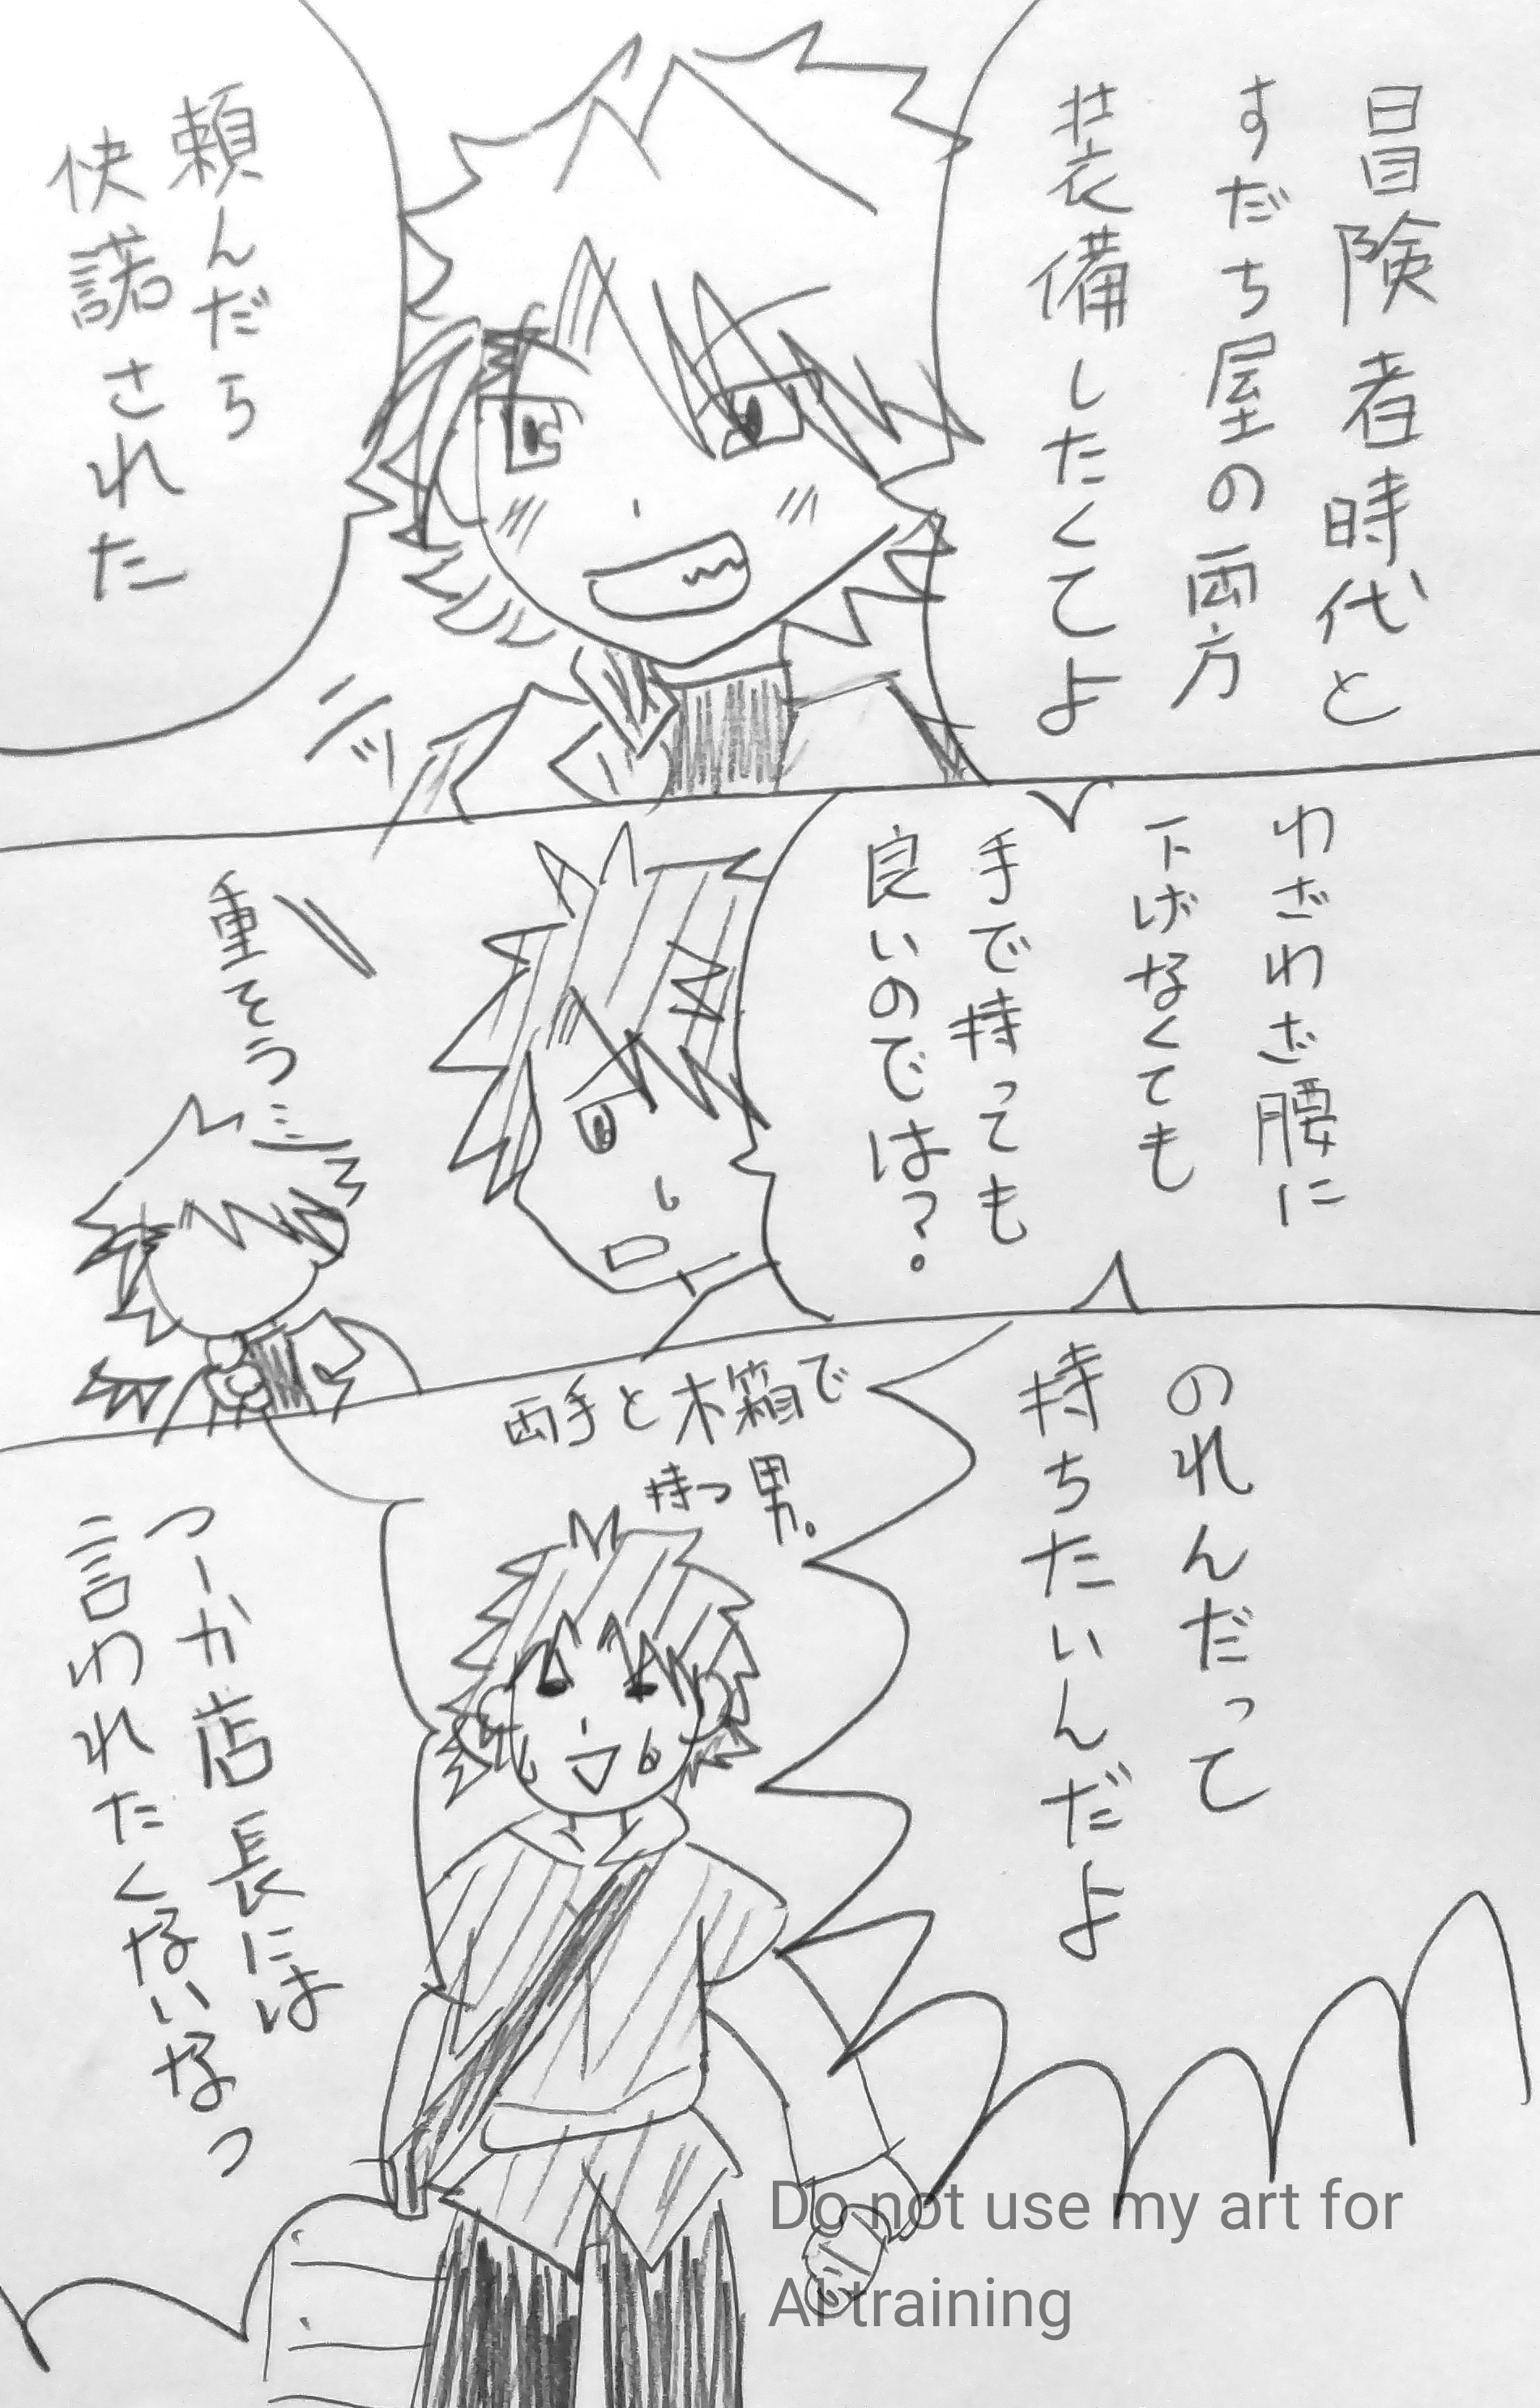 冒険者時代と
すだち屋の両方
装備したくてよ
頼んだら
快諾された
ニッ
わざわざ腰に
下げなくても
手で持っても
良いのでは?。
重そう…
のれんだって
持ちたいんだよ
両手と木箱で
持つ男。
つーか店長には
言われたくないなっ
Do not use my art for
AI training